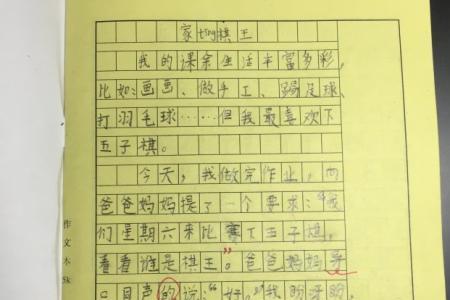 家ting棋王
我的课余生活丰富多彩,
比如:画画、做手工、踢足球、
打羽毛球……但我最喜欢下
五子棋。
今天,我做完作业,向
爸爸妈妈提了一个要求:“我
们星期六来比赛下五子棋,
看看谁是棋王”。爸爸妈妈异
口同声的说:“好。”我盼呀盼,
作文本